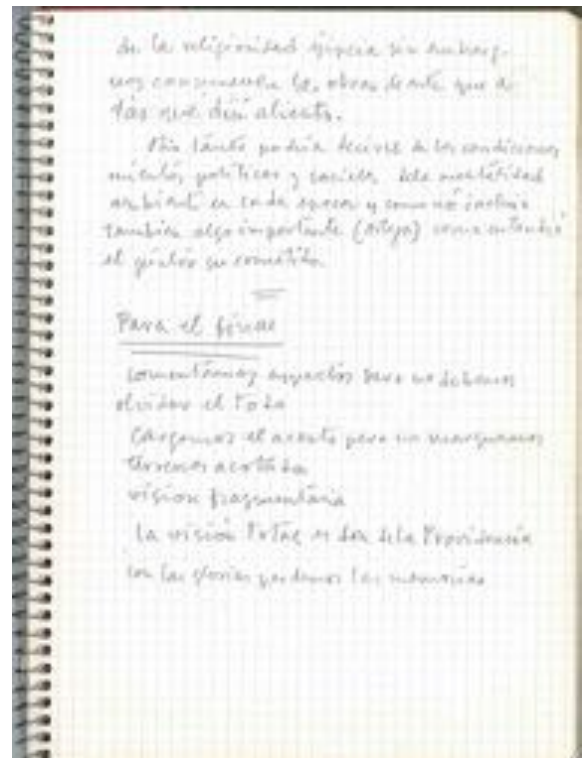 de la religiosidad egipcia sin embargo
nos conmueven las obras de arte que a
las que dió aliento.
Otro tanto podría decirse de los condiciona
mientos políticos y sociales, de la mentalidad
ambiente en cada época y como no incluir
también algo importante (ateya) como entendió
el pintor su cometido.
Para el final
comentamos aspectos pero no debemos
olvidar el Todo
Cargamos el acento pero no marquemos
terrenos acotados
visión fragmentaria
La visión Total es don de la Providencia
con las glorias perdemos las memorias